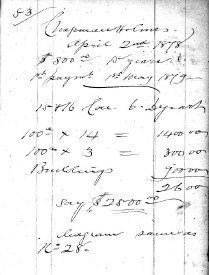 53
Chapman Holmes
April 2nd 1878
$800.00 5 years
1st paymt 1st May 1879
15 & 16 Con. 6.
100ac x 14 = 1400 00
100ac x 3 = 300 00
Buildings 900 00
2600
say $2500.00
diagram same as
No 28.